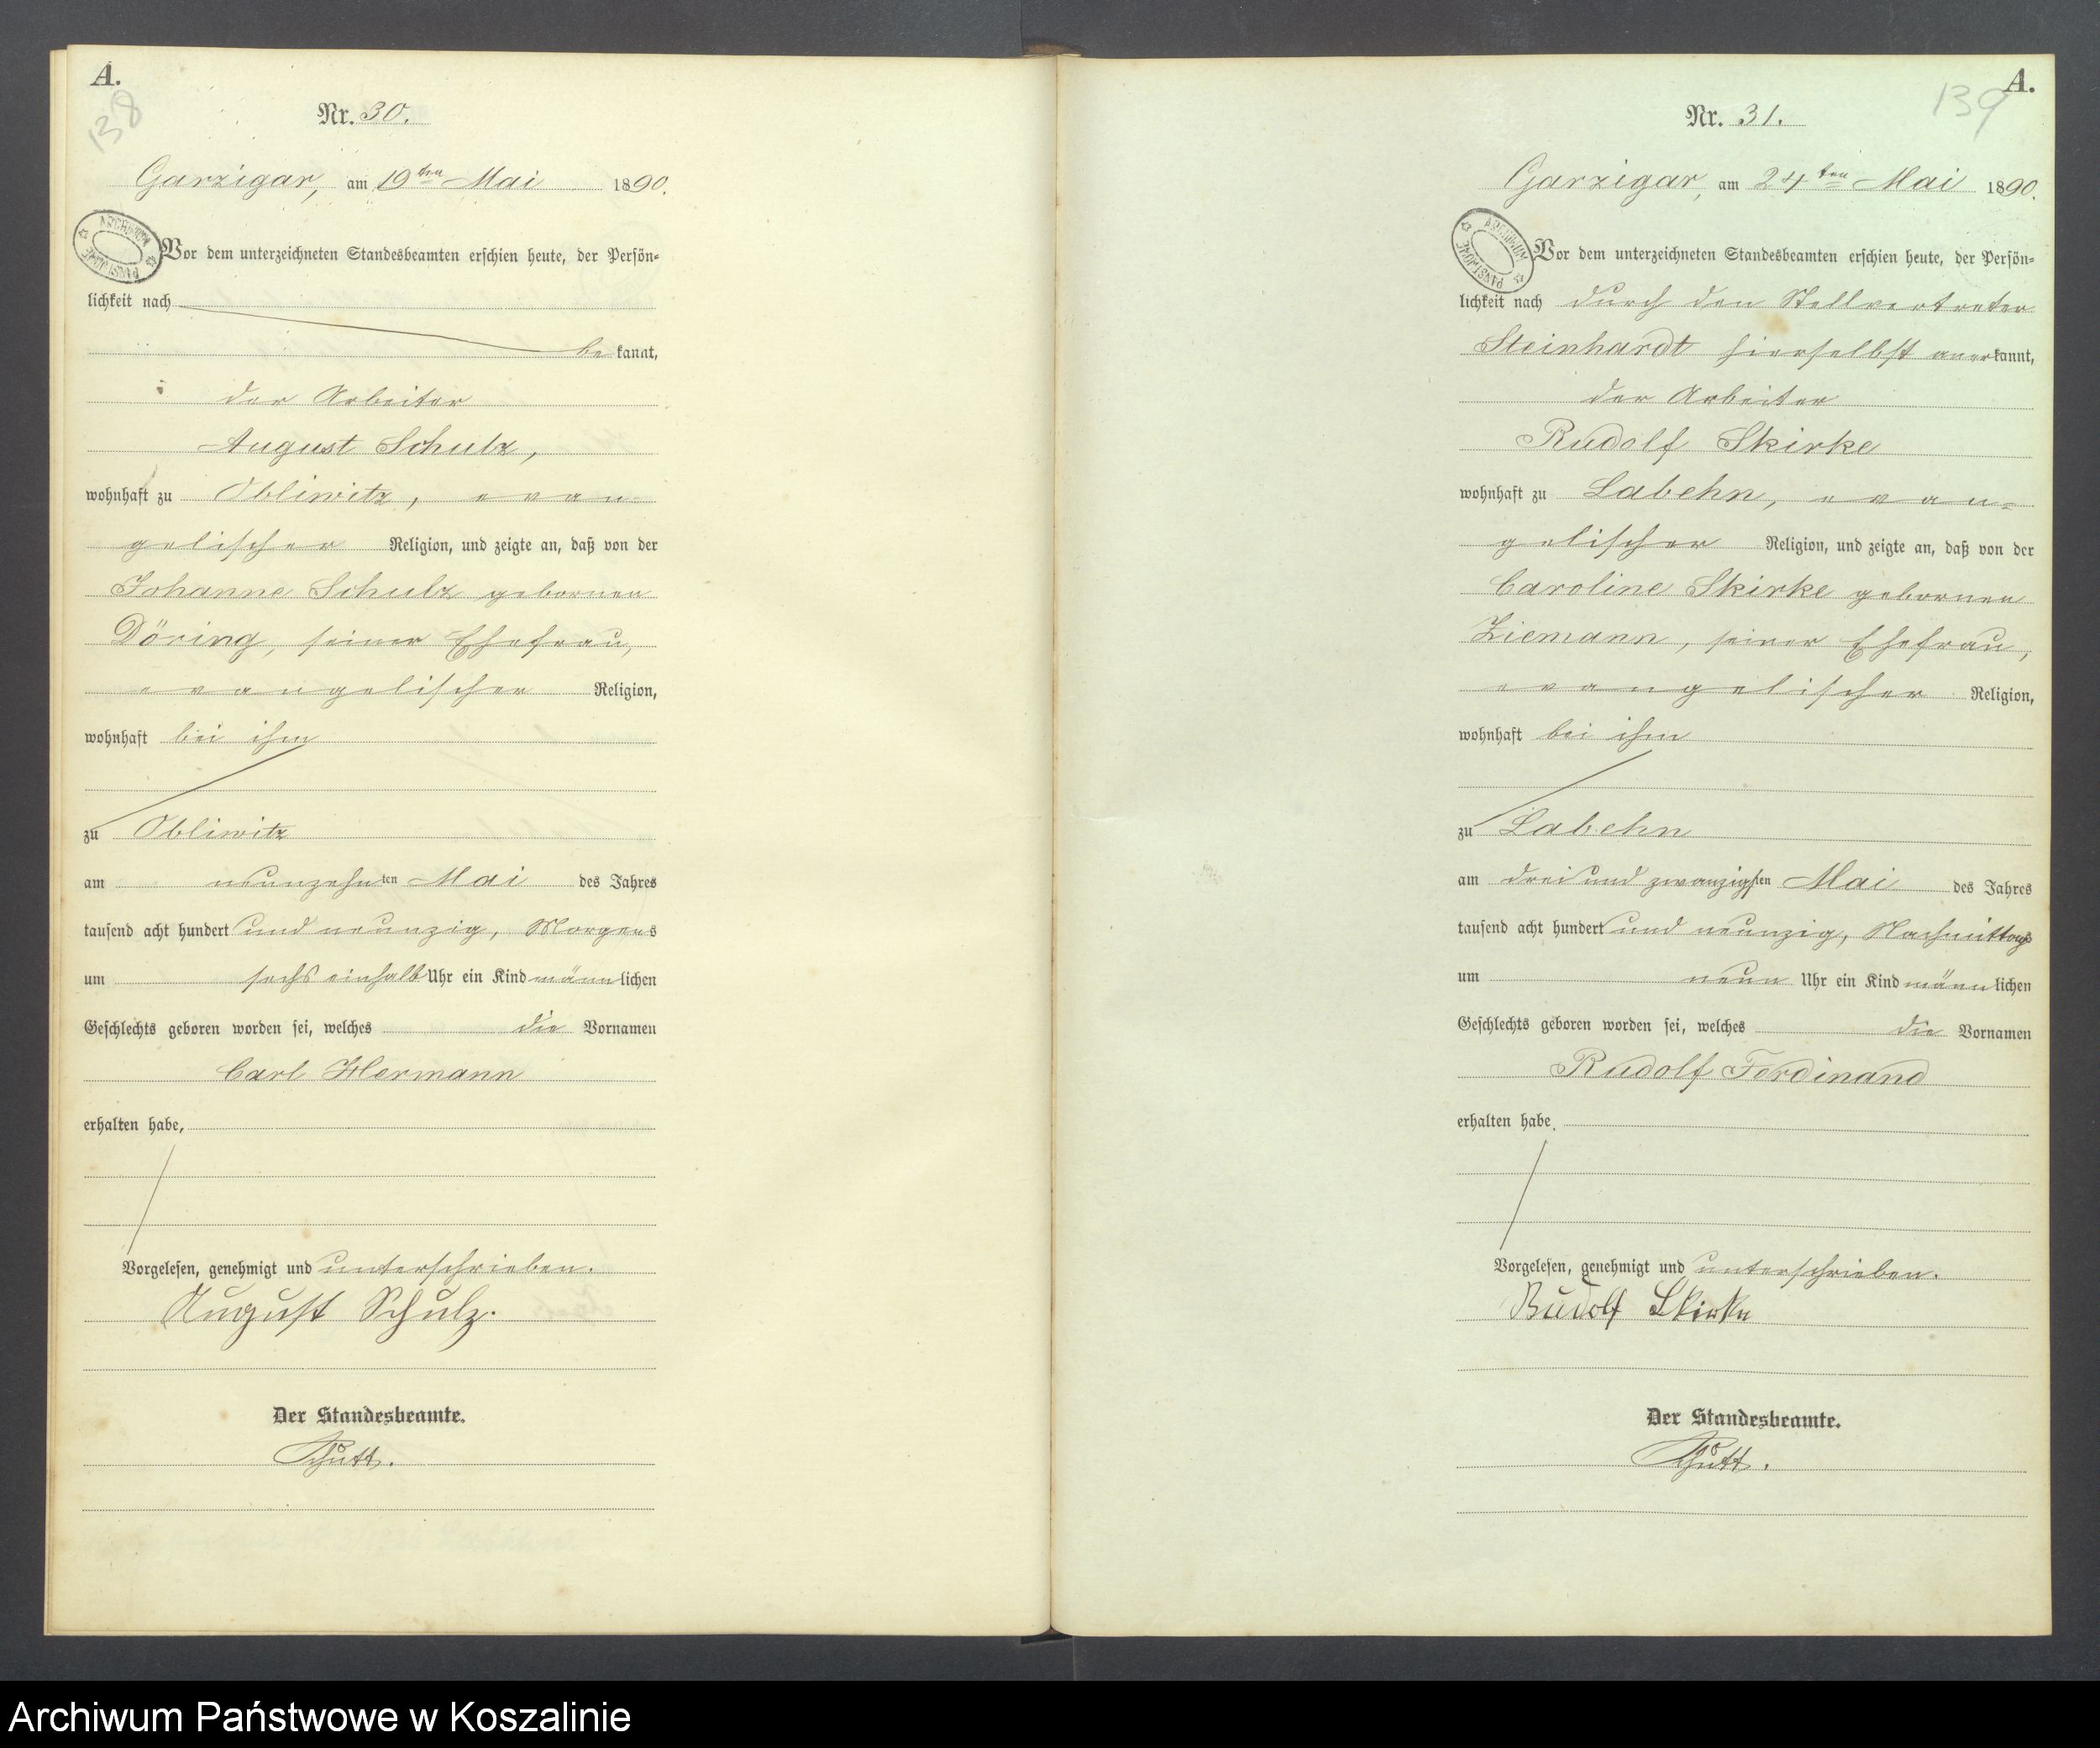 A.
138
Nr. 30.
Garzigar, am 19ten Mai 1890.
ARCHIWUM PAŃSTWOWE
Vor dem unterzeichneten Standesbeamten erschien heute, der Persön-
lichkeit nach
be kannt,
der Arbeiter
August Schulz,
wohnhaft zu Obliwitz, evan-
gelischer Religion, und zeigte an, daß von der
Johanne Schulz gebornen
Döring, seiner Ehefrau,
evangelischer Religion,
wohnhaft bei ihm
zu Obliwitz
am neunzehnten Mai des Jahres
tausend acht hundert und neunzig, Morgens
um sechs einhalb Uhr ein Kind männlichen
Geschlechts geboren worden sei, welches die Vornamen
Carl Hermann
erhalten habe,
Vorgelesen, genehmigt und unterschrieben.
August Schulz.
Der Standesbeamte.
Schütt.
A.
139
Nr. 31.
Garzigar, am 24ten Mai 1890.
ARCHIWUM PAŃSTWOWE
Vor dem unterzeichneten Standesbeamten erschien heute, der Persön-
lichkeit nach durch den Stellvertreter
Steinhardt hierselbst anerkannt,
der Arbeiter
Rudolf Skirke
wohnhaft zu Labehn, evan-
gelischer Religion, und zeigte an, daß von der
Caroline Skirke gebornen
Ziemann, seiner Ehefrau,
evangelischer Religion,
wohnhaft bei ihm
zu Labehn
am drei und zwanzigsten Mai des Jahres
tausend acht hundert und neunzig, Nachmittags
um neun Uhr ein Kind männlichen
Geschlechts geboren worden sei, welches die Vornamen
Rudolf Ferdinand
erhalten habe.
Vorgelesen, genehmigt und unterschrieben.
Rudolf Skirke
Der Standesbeamte.
Schütt.
Archiwum Państwowe w Koszalinie